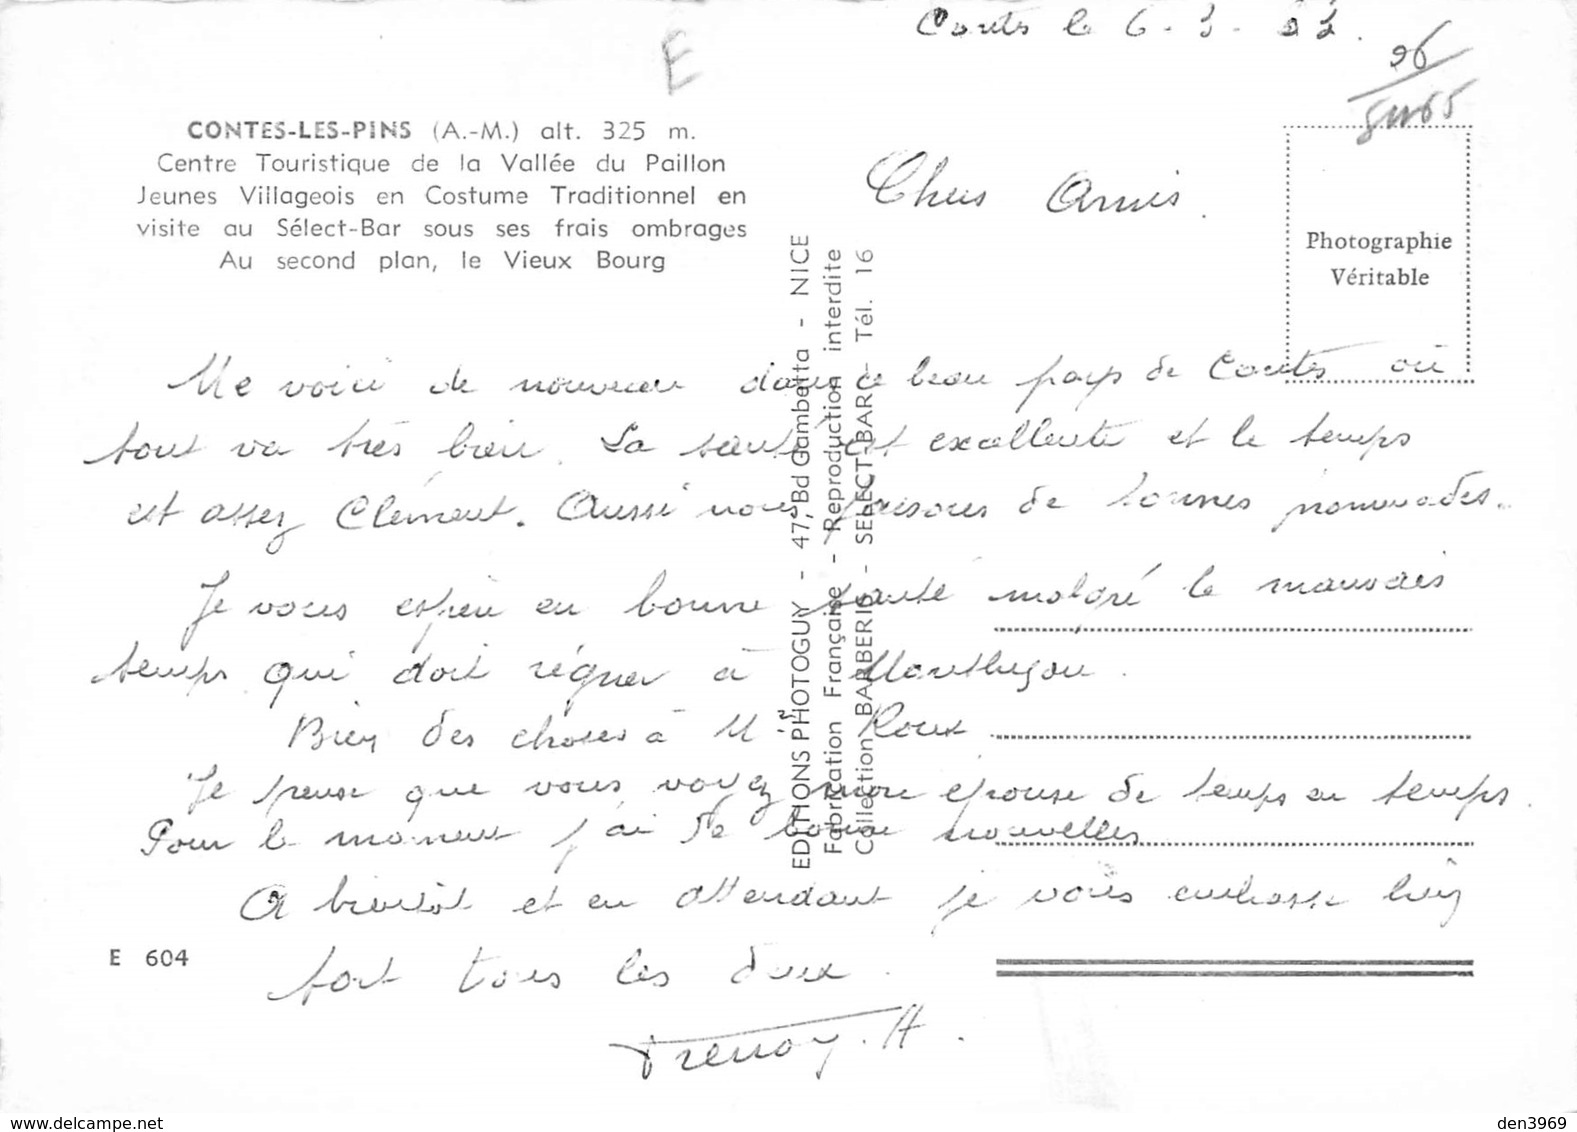 Contes le 6-3-63.
E
96
CONTES-LES-PINS (A.-M.) alt. 325 m.
Centre Touristique de la Vallée du Paillon
Jeunes Villageois en Costume Traditionnel en
visite au Sélect-Bar sous ses frais ombrages
Au second plan, le Vieux Bourg
Photographie
Véritable
EDITIONS PHOTOGUY - 47, Bd Gambetta - NICE
Fabrication Française - Reproduction interdite
Collection BARBERIS - SELECT-BAR - Tél. 16
Chers Amis.
Me voici de nouveau dans ce beau pays de Contes où
tout va très bien. La santé est excellente et le temps
est assez Clément. Aussi nous faisons de bonnes promenades.
Je vous espère en bonne santé malgré le mauvais
temps qui doit régner à Montluçon.
Bien des choses à M. Roux
Je pense que vous voyez mon épouse de temps en temps.
Pour le moment j'ai de bonne nouvelles
A bientôt et en attendant je vous embrasse bien
fort tous les deux.
E 604
H.
delcampe.net
den3969